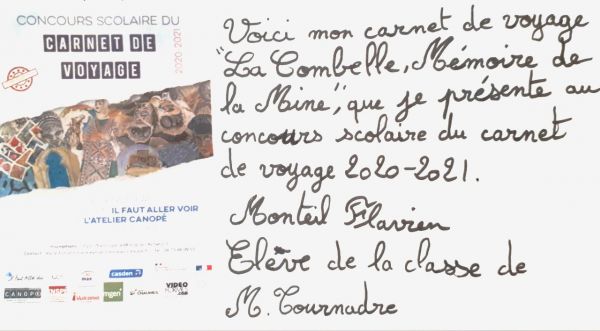 CONCOURS SCOLAIRE DU
CARNET DE
VOYAGE
2020 2021
IL FAUT ALLER VOIR
L'ATELIER CANOPÉ
casden
CANOPÉ
mgen
VIDEO
FORMES
.COM
Voici mon carnet de voyage
"La Combelle, Mémoire de
la Mine", que je présente au
concours scolaire du carnet
de voyage 2020-2021.
Monteil Flavien
Elève de la classe de
M. Tournadre